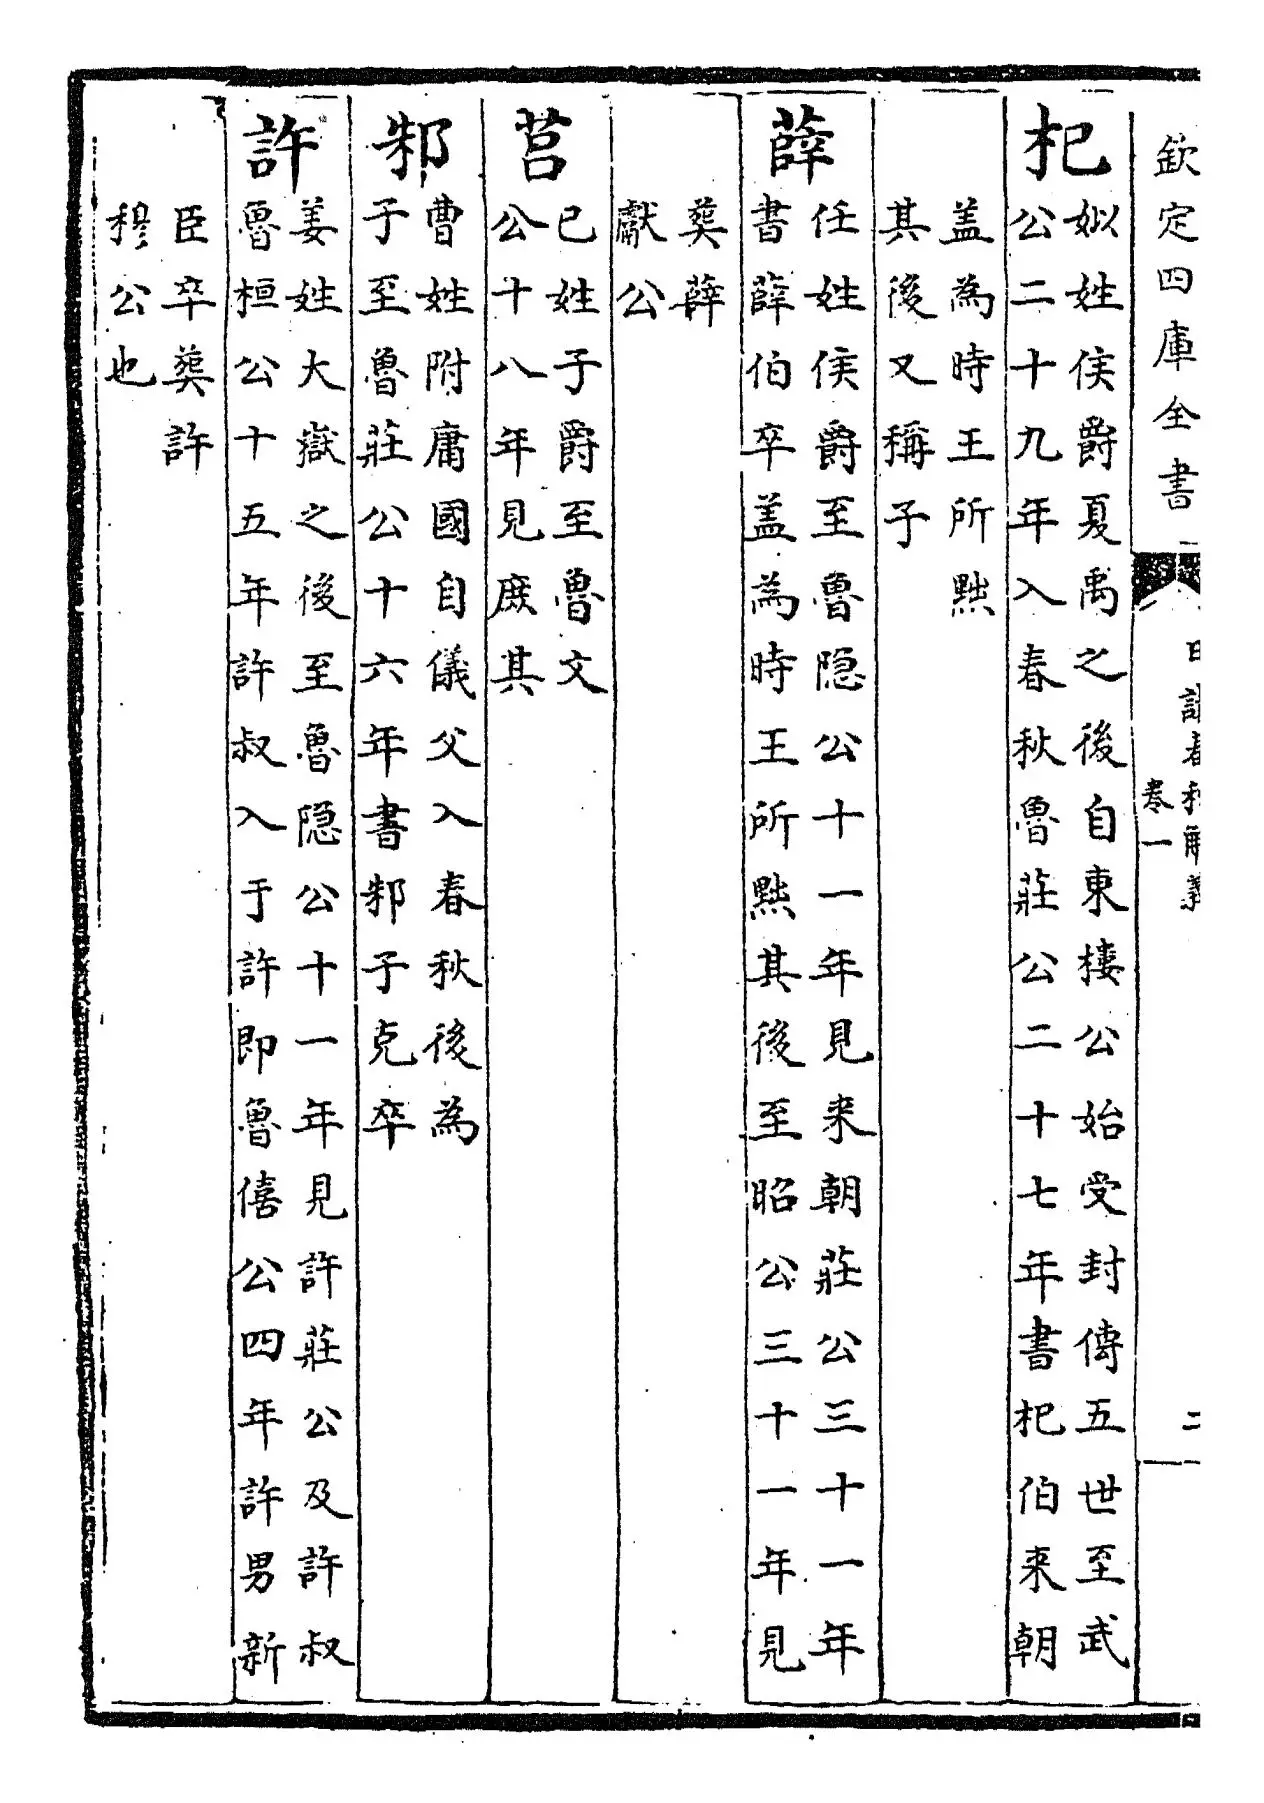 欽定四庫全書
日講春秋解義
卷一
二
杞
姒姓侯爵夏禹之後自東樓公始受封傳五世至武
公二十九年入春秋魯莊公二十七年書杞伯来朝
盖為時王所㸃
其後又稱子
薛
任姓侯爵至魯隐公十一年見来朝莊公三十一年
書薛伯卒盖為時王所㸃其後至昭公三十一年見
葬薛
獻公
莒
已姓子爵至魯文
公十八年見庶其
邾
曹姓附庸國自儀父入春秋後為
子至魯莊公十六年書邾子克卒
許
姜姓大嶽之後至魯隐公十一年見許莊公及許叔
魯桓公十五年許叔入于許即魯僖公四年許男新
臣卒葬許
穆公也